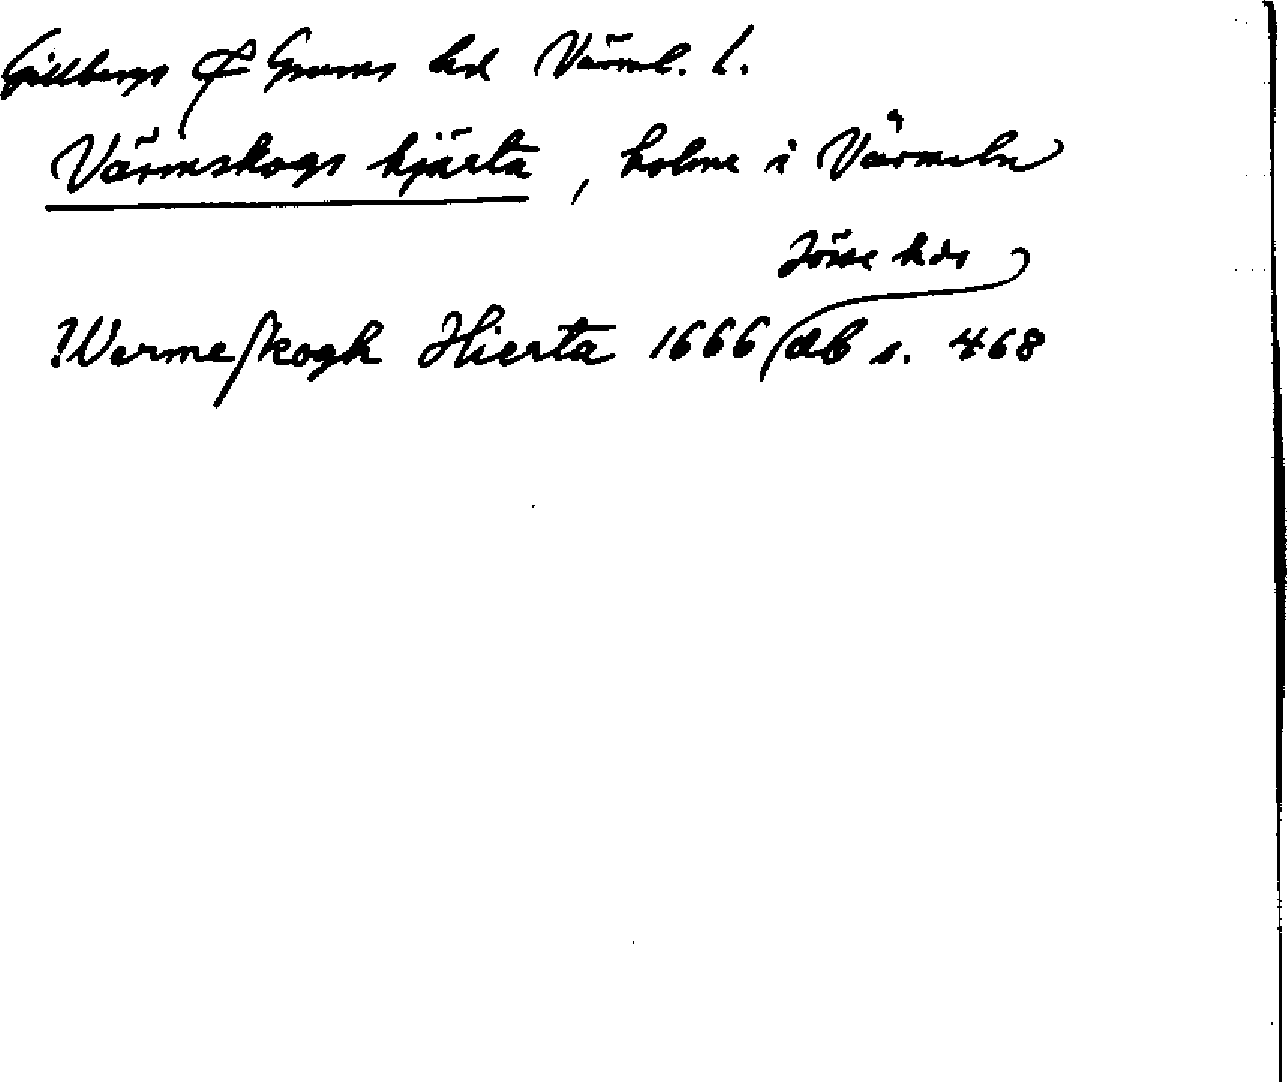 Gillbergs & Grums hd Värml. l.
Värmskogs hjärta, holme i Värmeln
Jösse hds
Wermeskogh Hierta 1666 db s. 468